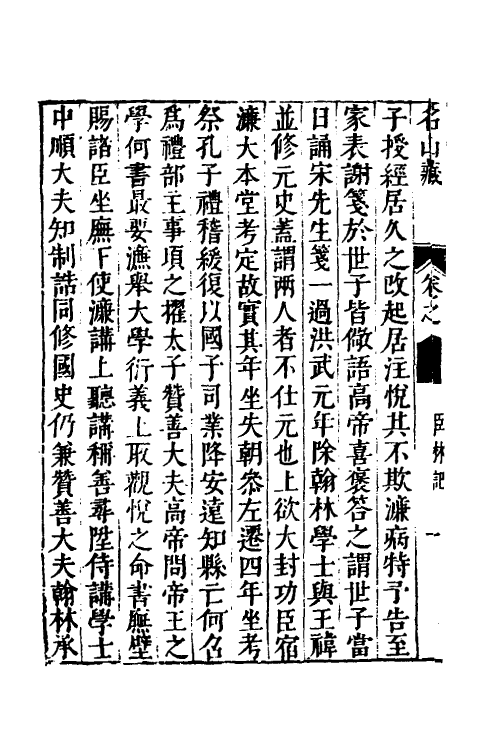 名山藏
卷之
臣林記
一
子授經居久之改起居注悅其不欺濂病特予告至
家表謝箋於世子皆儆語高帝喜褒答之謂世子當
日誦宋先生箋一過洪武元年除翰林學士與王褘
並修元史蓋謂兩人者不仕元也上欲大封功臣宿
濂大本堂考定故實其年坐失朝參左遷四年坐考
祭孔子禮稽緩復以國子司業降安遠知縣亡何召
爲禮部主事頃之擢太子贊善大夫高帝問帝王之
學何書最要濂舉大學衍義上取觀悅之命書廡壁
賜諸臣坐廡下使濂講上聽講稱善尋陞侍講學士
中順大夫知制誥同修國史仍兼贊善大夫翰林承